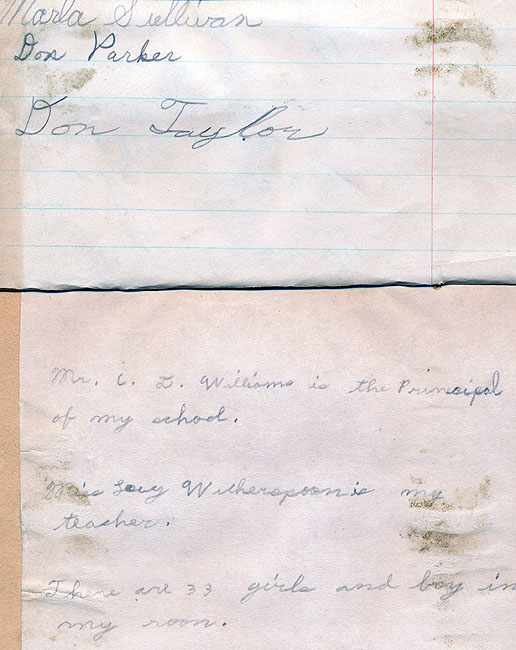 Marla Sullivan
Don Parker
Don Taylor
Mr. C. D. Williams is the Principal
of my school.
Miss Lucy Witherspoon is my
teacher.
There are 33 girls and boy in
my room.